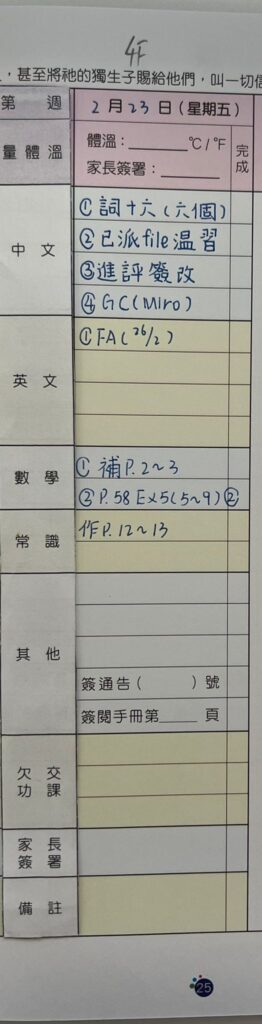 4F
，甚至將祂的獨生子賜給他們，叫一切信
第 週 2月23日(星期五)
量體溫 體溫：______°C/°F 完成
家長簽署：______
中文 ①詞十六(六個)
②已派file温習
③進評簽改
④GC(Miro)
英文 ①FA(26/2)
數學 ①補P.2~3
②P.58 Ex5(5~9)②
常識 作P.12~13
其他
簽通告( )號
簽閱手冊第____頁
欠交功課
家長簽署
備註
25